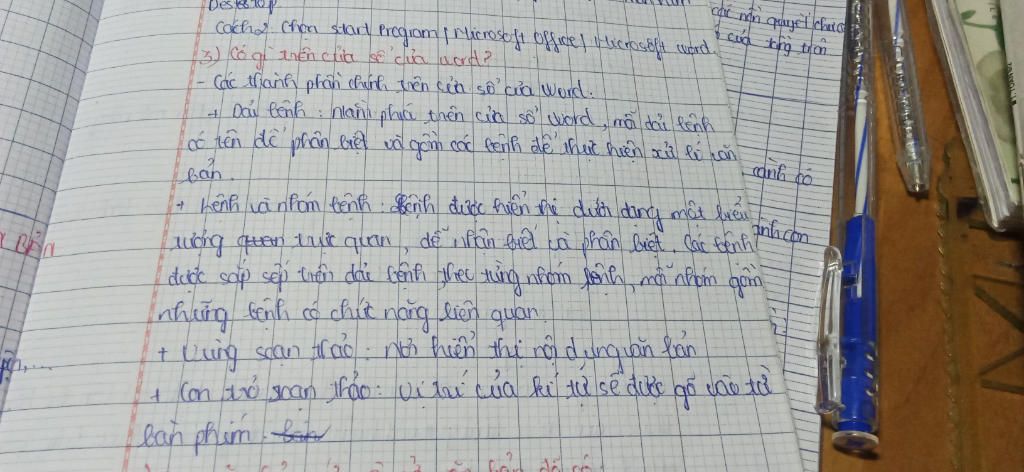 Destktop
Cách2: Chọn start Program / Microsoft office / Microsoft word
3) Có gì trên cửa sổ của word?
- Các thành phần chính trên cửa sổ của Word.
+ Dải lệnh: Nằm phía trên cửa sổ word, mỗi dải lệnh
có tên để phân biệt và gồm các lệnh để thực hiện xử lí văn
bản.
+ Lệnh và nhóm lệnh: lệnh được hiển thị dưới dạng một biểu
tượng trực quan, dễ nhận biết và phân biệt. Các lệnh
được sắp sếp trên dải lệnh theo từng nhóm lệnh, mỗi nhóm gồm
những lệnh có chức năng liên quan.
+ Vùng soạn thảo: nơi hiển thị nội dung văn bản
+ Con trỏ soạn thảo: Vị trí của kí tự sẽ được gõ vào từ
bàn phím.
các nôn quyết
của từng
cảnh có
ảnh con
BẢN